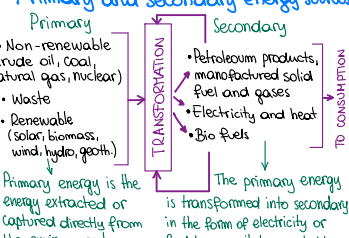 Primary and secondary energy sources
Primary
Secondary
• Non-renewable
crude oil, coal,
natural gas, nuclear)
• Waste
• Renewable
(solar, biomass,
wind, hydro, geoth.)
TRANSFORMATION
• Petroleum products,
manufactured solid
fuel and gases
• Electricity and heat
• Bio fuels
TO CONSUMPTION
Primary energy is the
energy extracted or
captured directly from
The primary energy
is transformed into secondary
in the form of electricity or